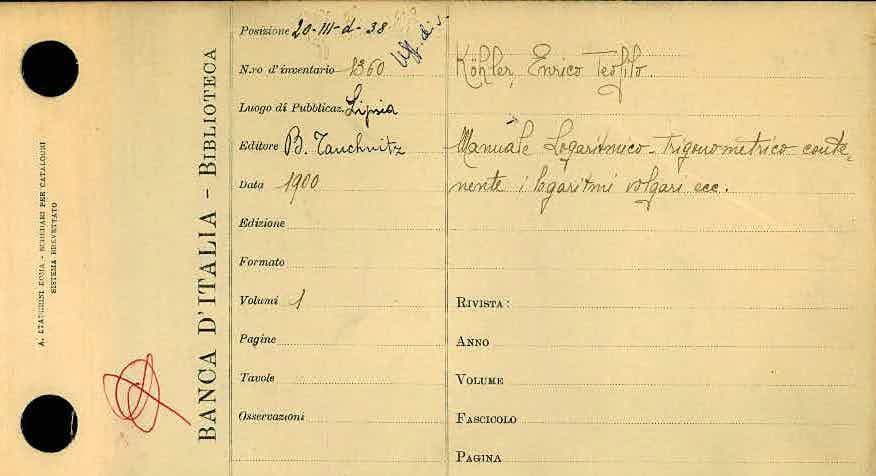 A. STADERINI ROMA - SCHEDARI PER CATALOGHI
SISTEMA BREVETTATO
BANCA D'ITALIA - BIBLIOTECA
Posizione 20-III-d-38
N.ro d'inventario 1360
Luogo di Pubblicaz. Lipsia
Editore B. Tauchnitz
Data 1900
Edizione
Formato
Volumi 1
Pagine
Tavole
Osservazioni
Köhler, Enrico Teofilo.
Manuale Logaritmico-trigonometrico conte-
nente i logaritmi volgari ecc.
RIVISTA:
ANNO
VOLUME
FASCICOLO
PAGINA